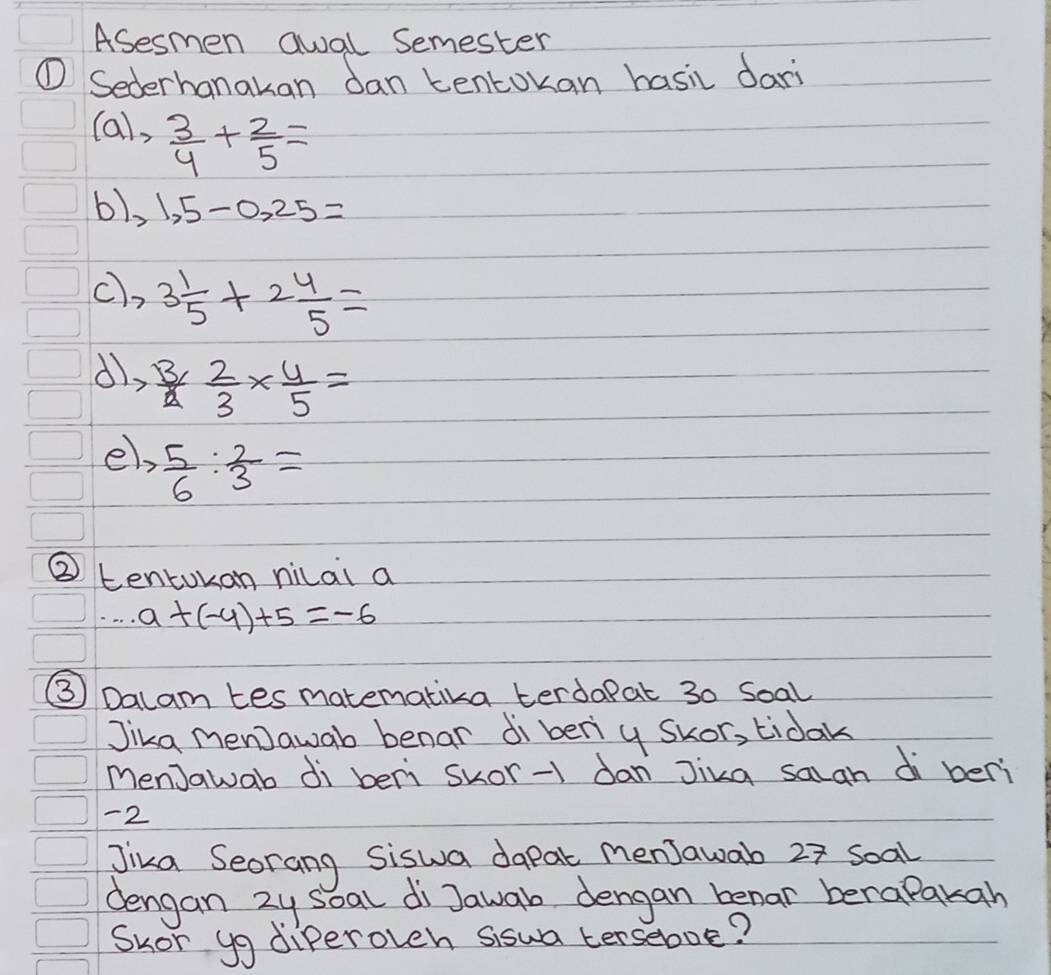 Asesmen awal Semester
① Sederhanakan dan tentukan hasil dari
(a), 3/4 + 2/5 =
b), 1,5 - 0,25 =
c), 3 1/5 + 2 4/5 =
d), 2/3 × 4/5 =
e), 5/6 : 2/3 =
② tentukan nilai a
.... a + (-4) + 5 = -6
③ Dalam tes matematika terdapat 30 Soal
Jika menjawab benar di beri 4 Skor, tidak
menjawab di beri Skor -1 dan Jika salah di beri
-2
Jika Seorang Siswa dapat menjawab 27 Soal
dengan 24 soal di Jawab dengan benar berapakah
Skor yg diperoleh siswa tersebut?